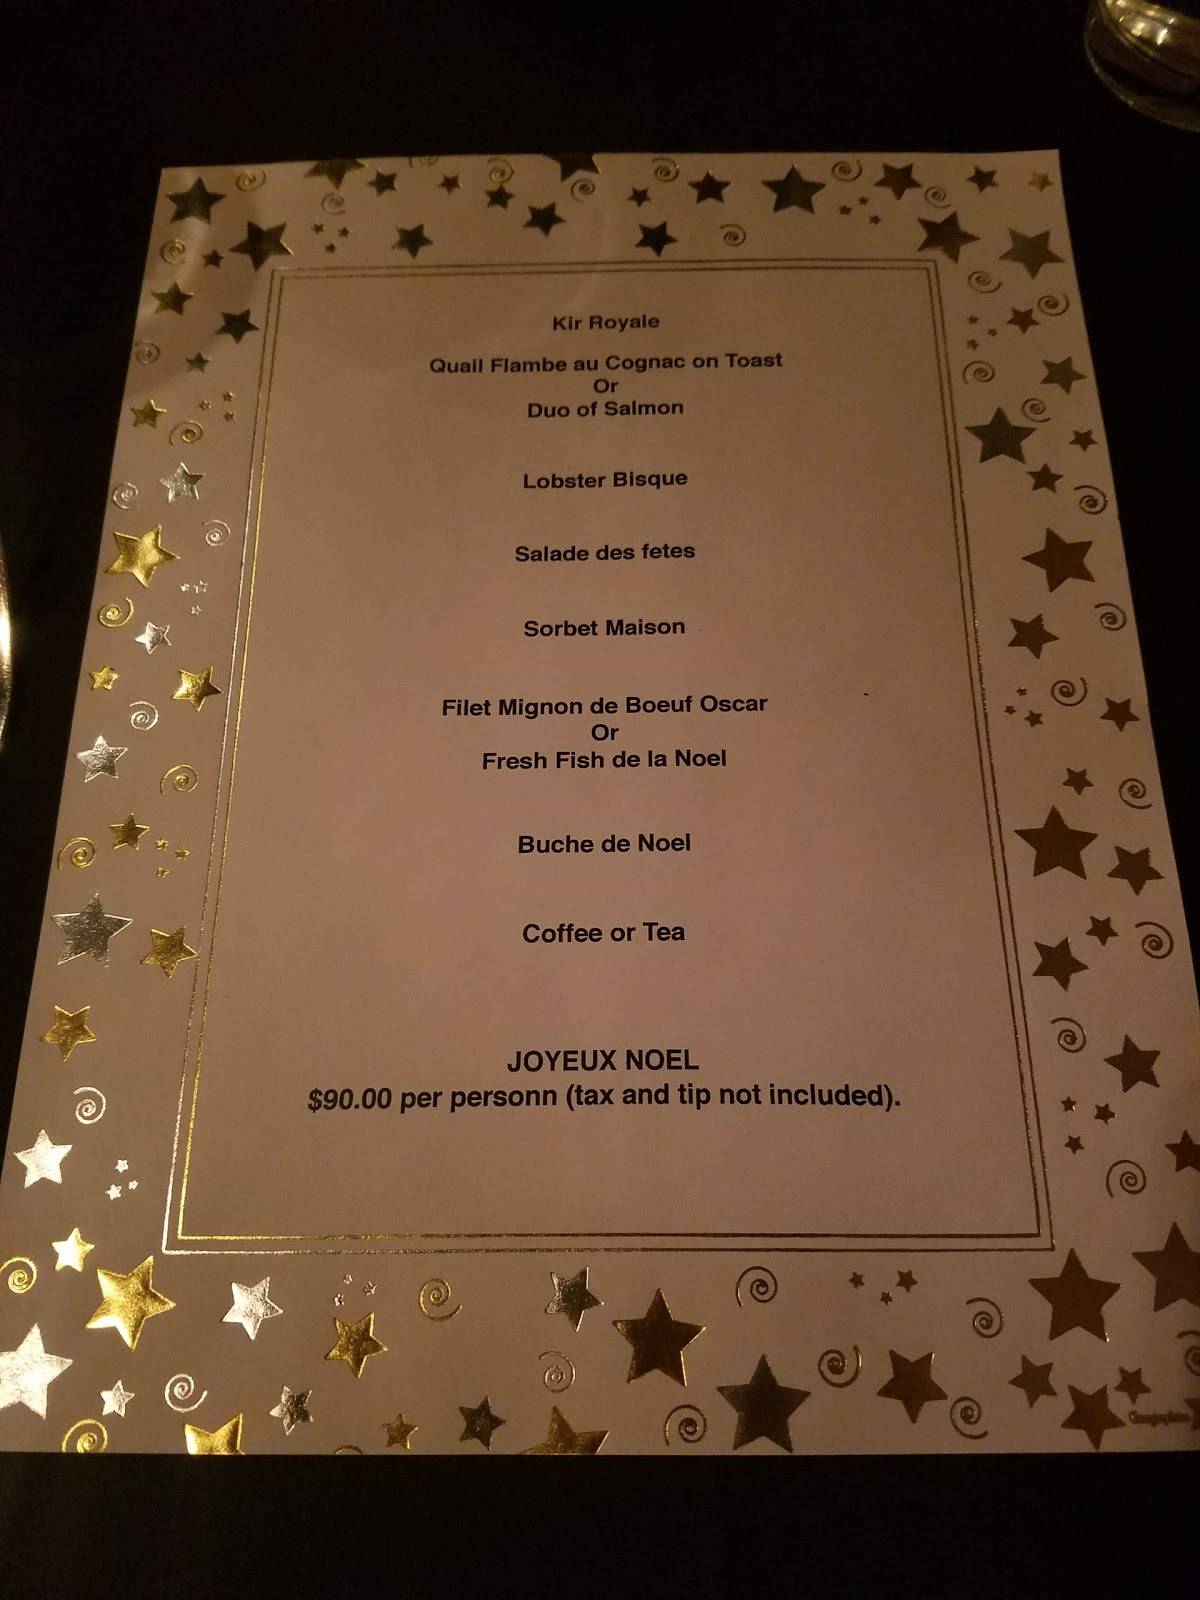 Kir Royale
Quail Flambe au Cognac on Toast
Or
Duo of Salmon
Lobster Bisque
Salade des fetes
Sorbet Maison
Filet Mignon de Boeuf Oscar
Or
Fresh Fish de la Noel
Buche de Noel
Coffee or Tea
JOYEUX NOEL
$90.00 per personn (tax and tip not included).